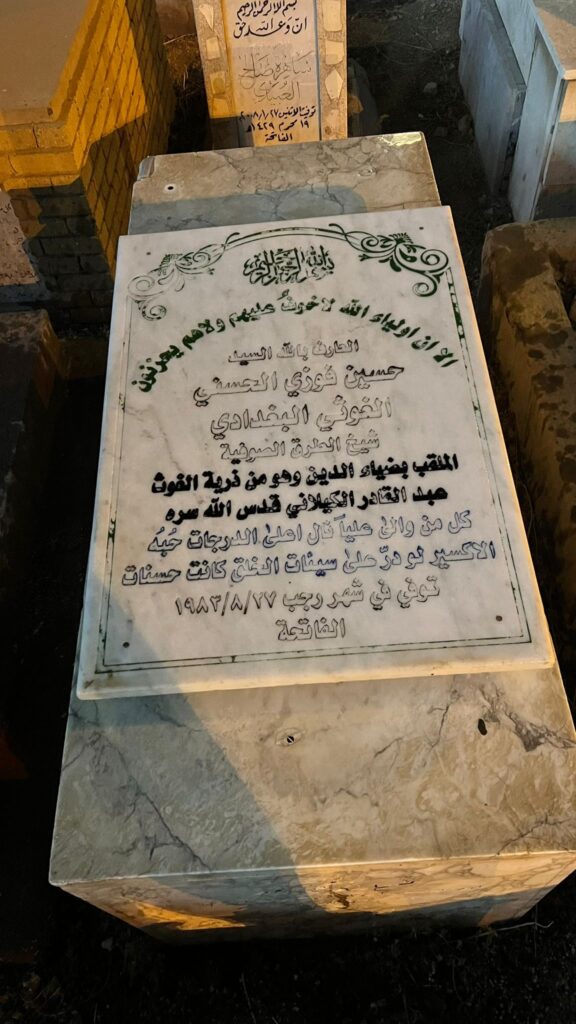 بسم الله الرحمن الرحيم
ان وعد الله حق
صالح
توفيت الاثنين ٢٠٠٨/١/٢٧
١٩ محرم ١٤٢٩هـ
الفاتحة
بسم الله الرحمن الرحيم
الا ان اولياء الله لا خوف عليهم ولا هم يحزنون
العارف بالله السيد
حسين فوزي الحسني
الغوثي البغدادي
شيخ الطرق الصوفية
الملقب بضياء الدين وهو من ذرية الغوث
عبد القادر الكيلاني قدس الله سره
كل من والى علياً نال اعلى الدرجات حُبُه
الاكسير لو درّ على سيئات الخلق كانت حسنات
توفي في شهر رجب ١٩٨٣/٨/٢٧
الفاتحة